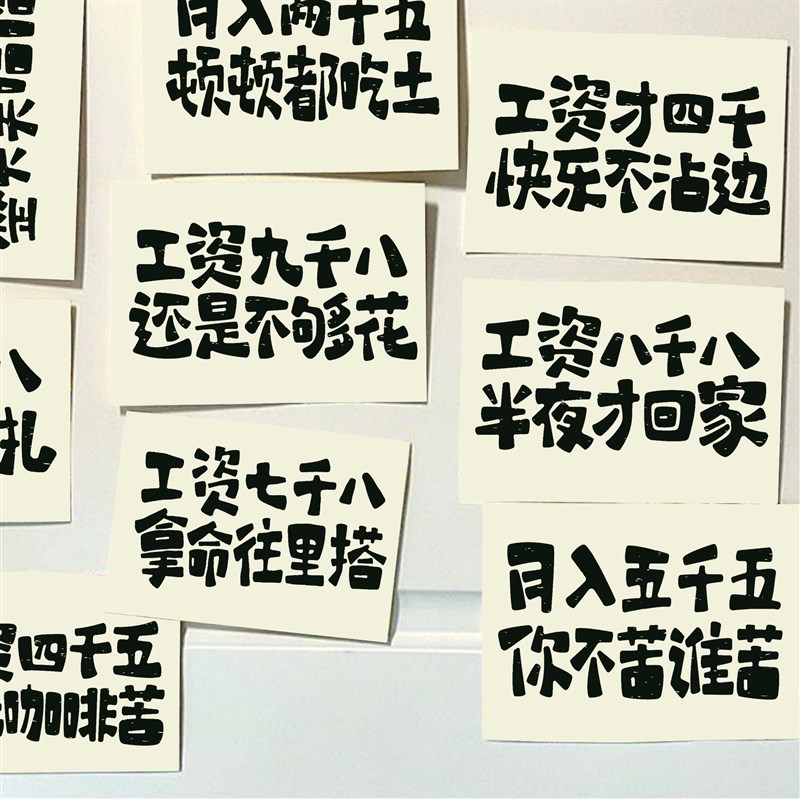 月入两千五
顿顿都吃土
工资才四千
快乐不沾边
工资九千八
还是不够花
工资八千八
半夜才回家
八
扎
工资七千八
拿命往里搭
月入五千五
你不苦谁苦
资四千五
咖啡苦